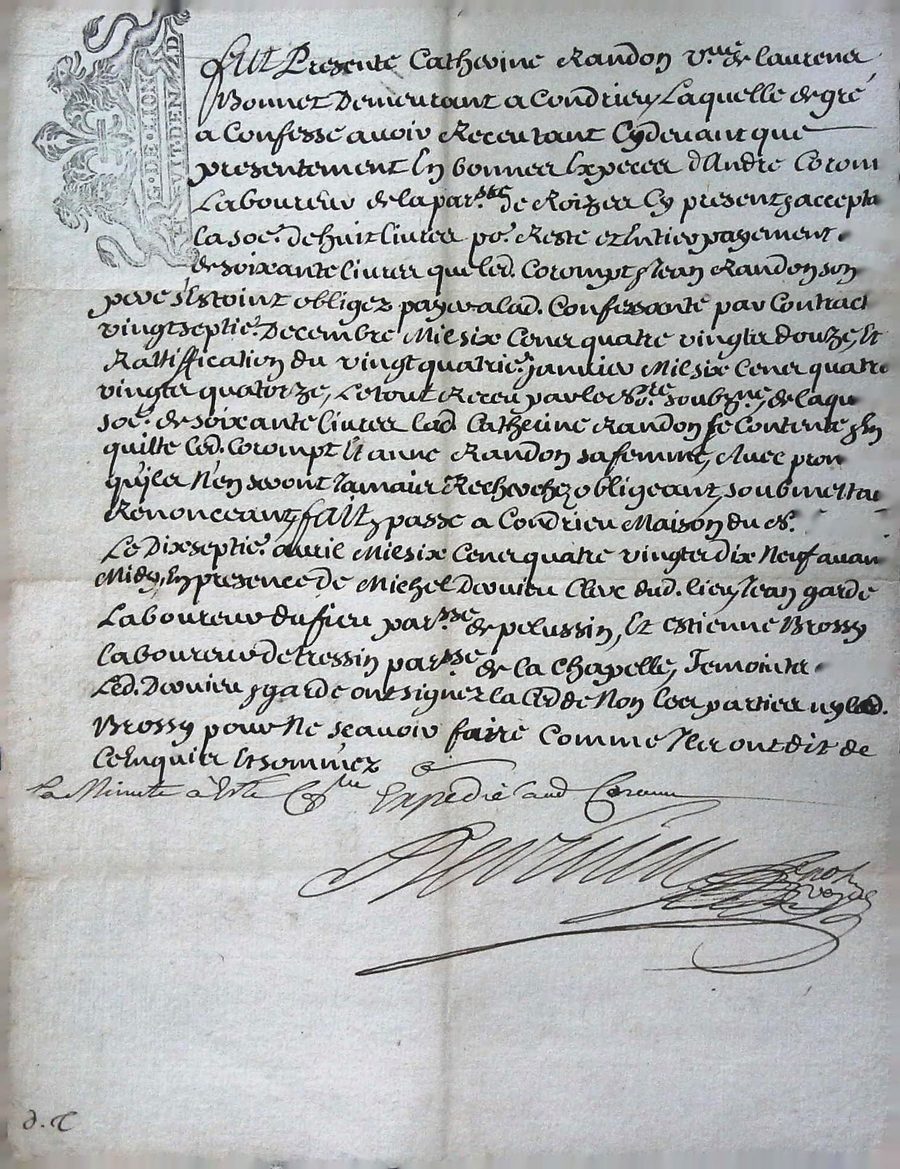 G. DE LION
HUIT DEN. 2D
fut Presente Catherine Randon v.^me de laurens
Bonnet Demeurant a Condrieu Laquelle de gré
a Confessé avoir Receu tant Cydevant que
presentement En bonnes Especes d'André Corom
Laboureur de la par.^sse de Roizea Cy present & accepta
la soe. de huit livres po. Reste et Entier payement
de soixante livres que led. Corompt & Jean Randon son
pere s'Estoint obligez payer a lad. Confessante par Contract
vingtseptie. Decembre Mil six Cens quatre vingts douze, Et
Rattiffication du vingtquatrie. janvier Mil six Cens quatre
vingts quatorze, Le tout Receu par le No.^re soubz.^né, de laqu
soe. de soixante livres lad. Catherine Randon se Contente & En
quitte led. Corompt Et anne Randon sa femme, Avec prom
qu'iler N'en seront Jamais Recherchez obligeant, soubmetta
Renonceant, fait & passé a Condrieu Maison du No.
Le Dixseptie. avril Mil six Cens quatre vingts dix Neuf avan
Midy, En presence de Michel Dervieu Clerc dud. lieu, Jean garde
Laboureur du fieu par.^sse de pelussin, Et estienne Brossy
laboureur de tressin par.^sse de la Chapelle, Temoints
Led. Dervieu & garde ont signez la Ced de Non les partier ny led.
Brossy pour Ne sçavoir faire Comme Iler ont dit de
Ce Enquier Et sommez
La Minute à Esté Con^llée Expedié aud Corom
Dervieu
d. C